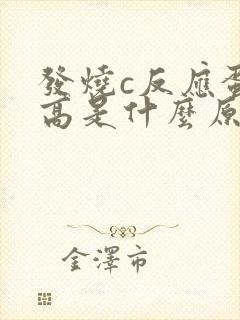 發燒c反應蛋
高是什麼原
金澤市